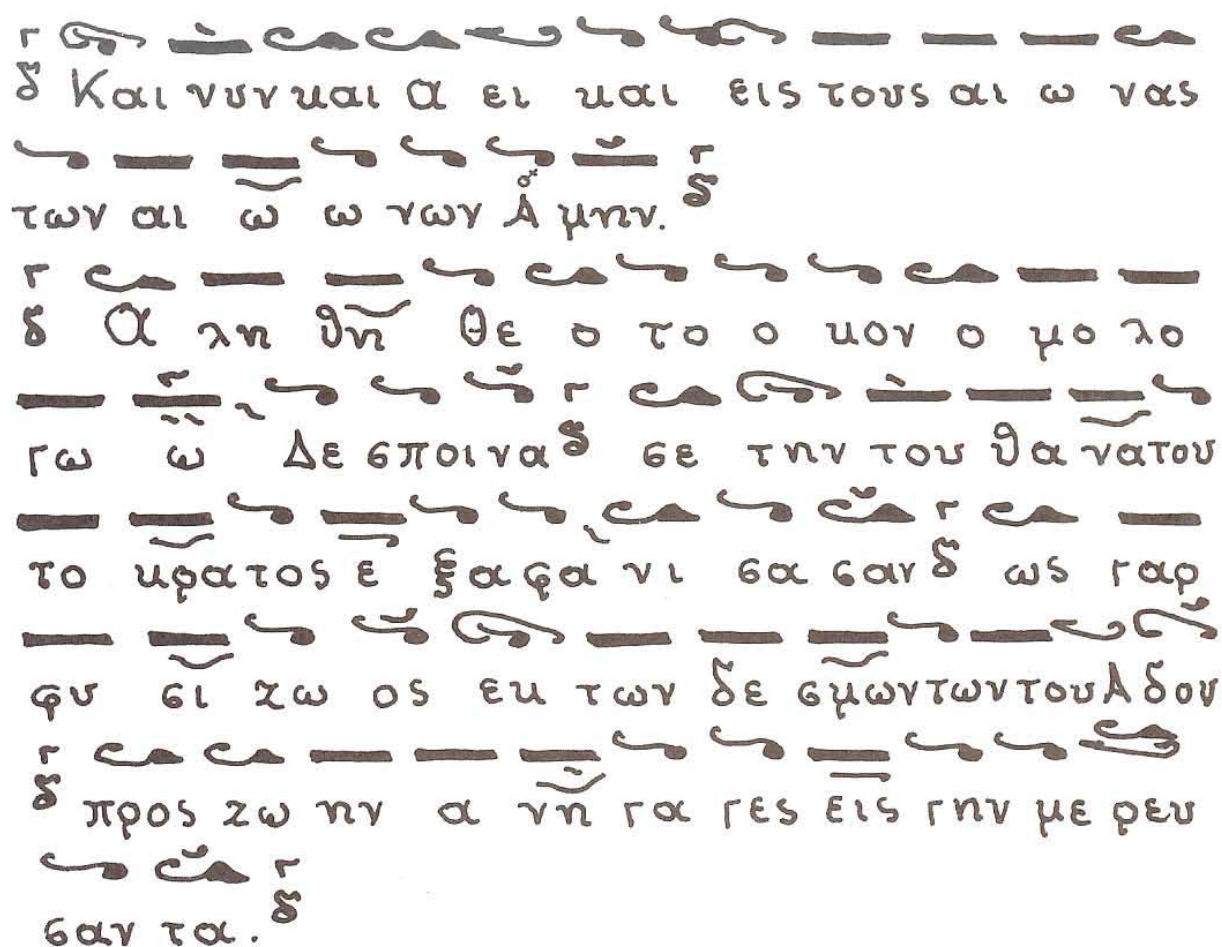 Και νυν και α ει και εις τους αι ω νας
των αι ω ω νων Α μην.
Α λη θη Θε ο το ο κον ο μο λο
γω ω Δε σποι να σε την του θα να του
το κρα τος ε ξα φα νι σα σαν ως γαρ
φυ σι ζω ος εκ των δε σμων των του Α δου
προς ζω ην α νη γα γες εις γην με ρευ
σαν τα.